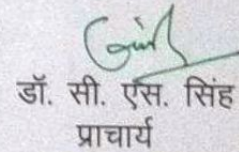 डॉ. सी. एस. सिंह
प्राचार्य